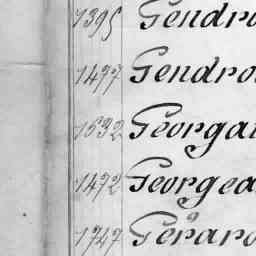 1395 Gendro
1477 Gendro
1632 Georga
1472 Georgea
1747 Gérard